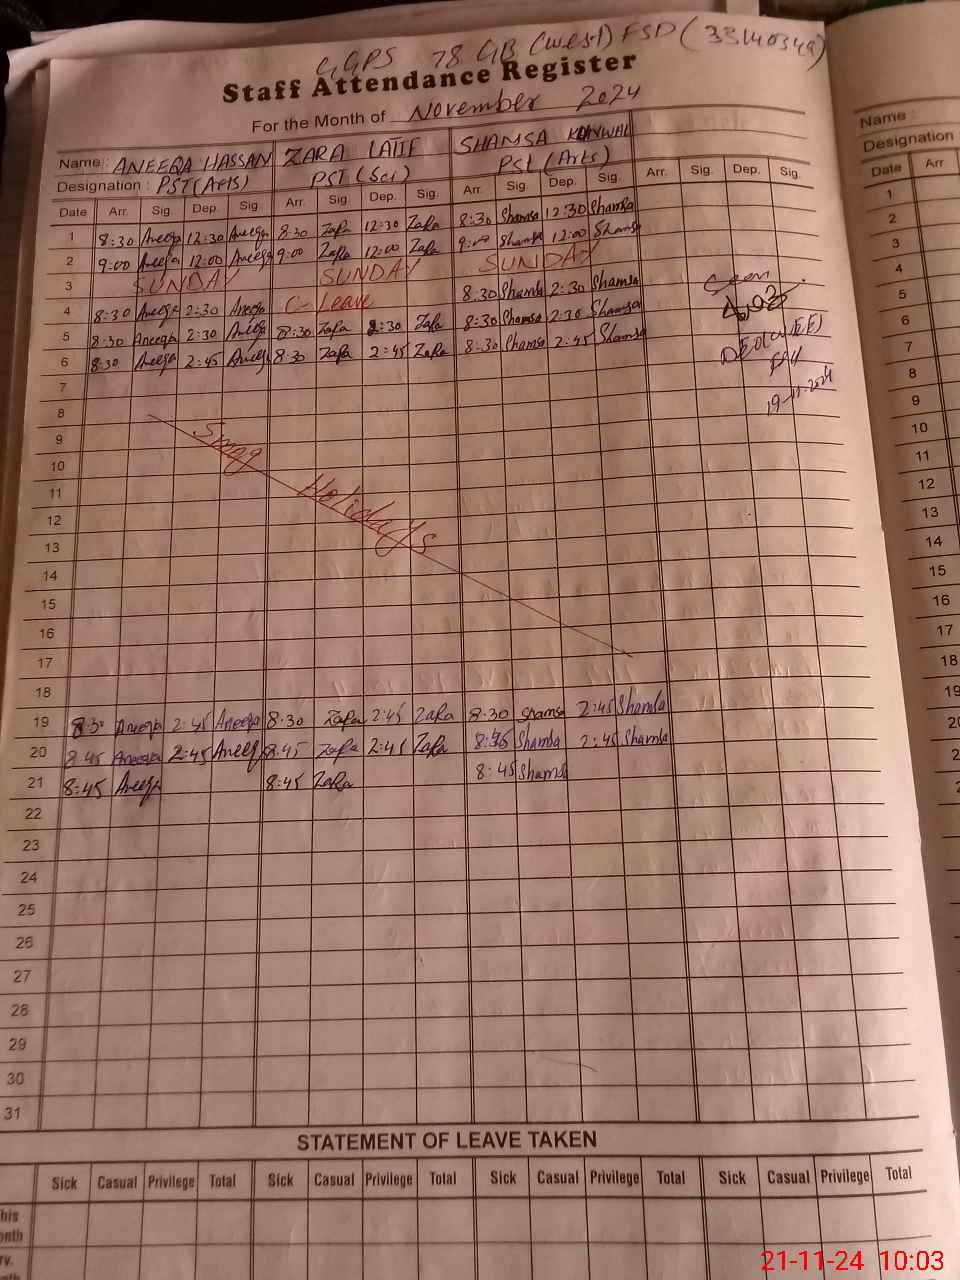 GGPS 78 GB (west) FSD (33140349)
Staff Attendance Register
For the Month of November 2024
Name : ANEEQA HASSAN ZARA LATIF SHAMSA KANWAL
Designation : PST (Arts) PST (Sci) PST (Arts)
Date Arr. Sig. Dep. Sig. Arr. Sig. Dep. Sig. Arr. Sig. Dep. Sig. Arr. Sig. Dep. Sig.
1 8:30 Aneeqa 12:30 Aneeqa 8:30 Zara 12:30 Zara 8:30 Shamsa 12:30 Shamsa
2 9:00 Aneeqa 12:00 Aneeqa 9:00 Zara 12:00 Zara 9:00 Shamsa 12:00 Shamsa
3 SUNDAY SUNDAY SUNDAY
4 8:30 Aneeqa 2:30 Aneeqa C-Leave 8:30 Shamsa 2:30 Shamsa
5 8:30 Aneeqa 2:30 Aneeqa 8:30 Zara 2:30 Zara 8:30 Shamsa 2:30 Shamsa
6 8:30 Aneeqa 2:45 Aneeqa 8:30 Zara 2:45 Zara 8:30 Shamsa 2:45 Shamsa
Seen
19-11-2024
7
8
9 Smog
10
11 Holidays
12
13
14
15
16
17
18
19 8:30 Aneeqa 2:45 Aneeqa 8:30 Zara 2:45 Zara 8:30 Shamsa 2:45 Shamsa
20 8:45 Aneeqa 2:45 Aneeqa 8:45 Zara 2:45 Zara Shamsa 2:45 Shamsa
21 8:45 Aneeqa 8:45 Zara 8:45 Shamsa
22
23
24
25
26
27
28
29
30
31
STATEMENT OF LEAVE TAKEN
Sick Casual Privilege Total Sick Casual Privilege Total Sick Casual Privilege Total Sick Casual Privilege Total
Name :
Designation
Date Arr
1
2
3
4
5
6
7
8
9
10
11
12
13
14
15
16
17
18
19
20
21-11-24 10:03